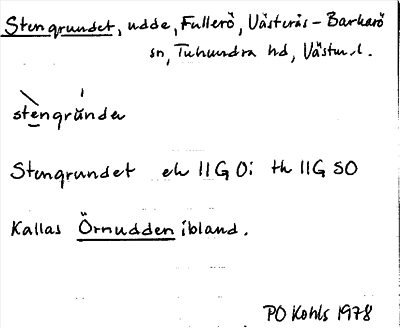 Stengrundet, udde, Fullerö, Västerås-Barkarö
sn, Tuhundra hd, Västm.l.
stengrúnde
Stengrundet ek 11G 0i th 11G SO
Kallas Örnudden ibland.
PO Kohls 1978